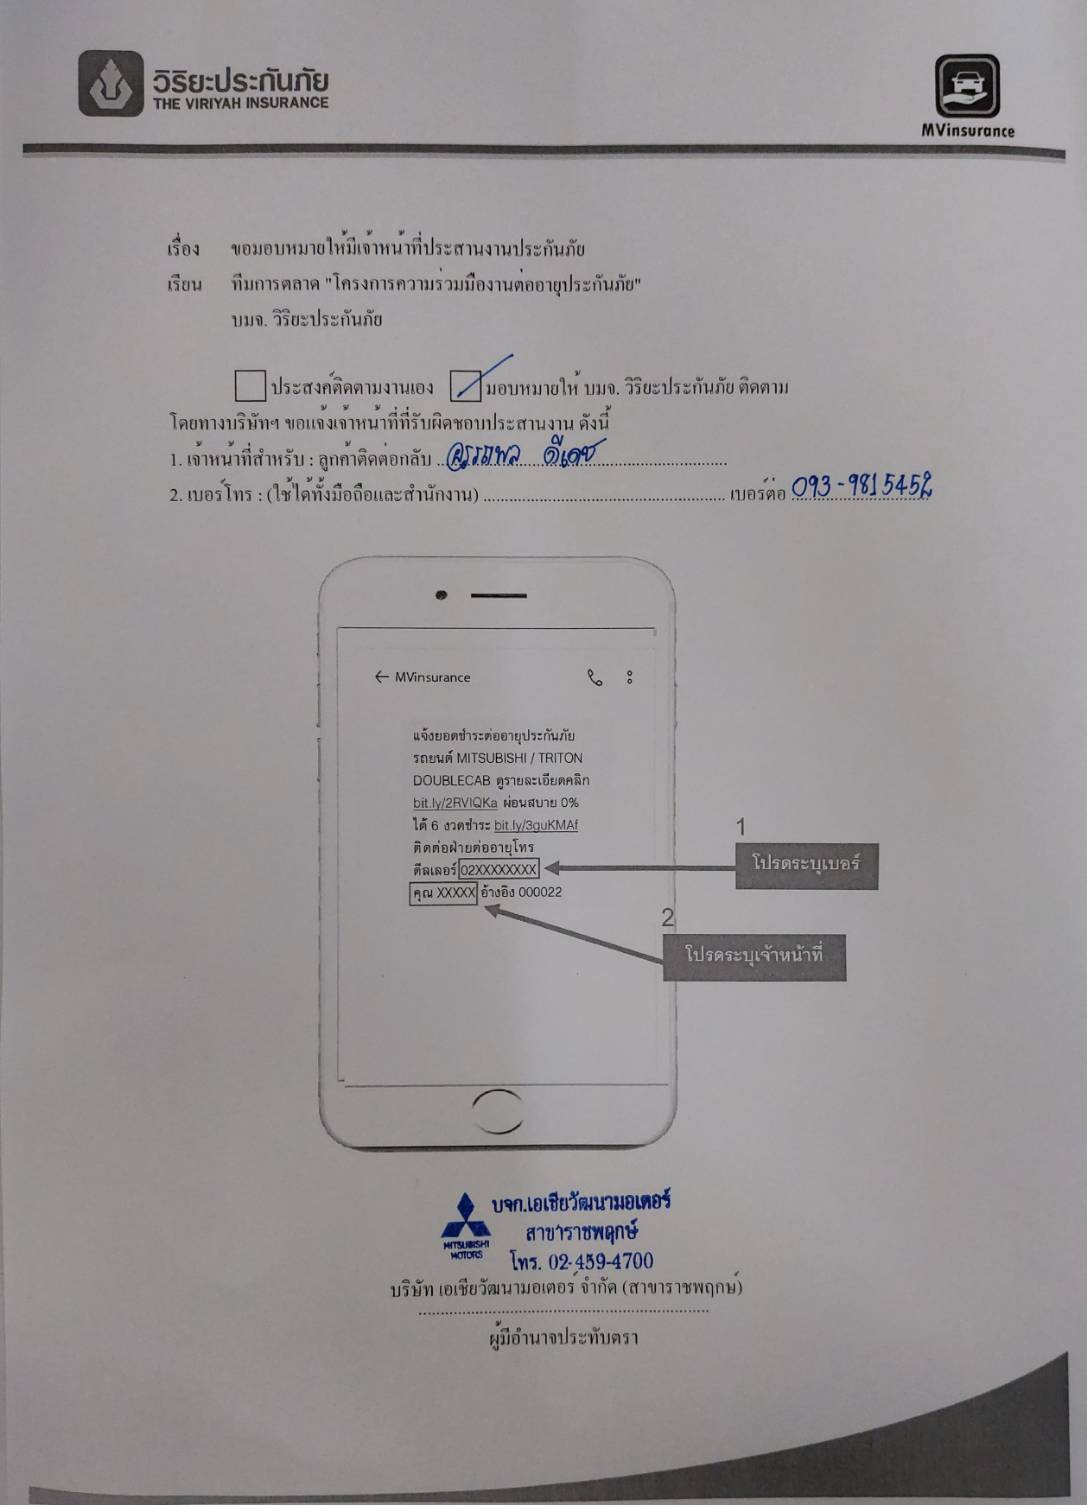 วิริยะประกันภัย
THE VIRIYAH INSURANCE
MVinsurance
เรื่อง ขอมอบหมายให้มีเจ้าหน้าที่ประสานงานประกันภัย
เรียน ทีมการตลาด "โครงการความร่วมมืองานต่ออายุประกันภัย"
บมจ. วิริยะประกันภัย
ประสงค์ติดตามงานเอง มอบหมายให้ บมจ. วิริยะประกันภัย ติดตาม
โดยทางบริษัทฯ ขอแจ้งเจ้าหน้าที่ที่รับผิดชอบประสานงาน ดังนี้
1. เจ้าหน้าที่สำหรับ : ลูกค้าติดต่อกลับ ดีเดช
2. เบอร์โทร : (ใช้ได้ทั้งมือถือและสำนักงาน) ........ เบอร์ต่อ 093-9815452
← MVinsurance
แจ้งยอดชำระต่ออายุประกันภัย
รถยนต์ MITSUBISHI / TRITON
DOUBLECAB ดูรายละเอียดคลิก
bit.ly/2RVIQKa ผ่อนสบาย 0%
ได้ 6 งวดชำระ bit.ly/3guKMAf
ติดต่อฝ่ายต่ออายุโทร
ดีลเลอร์ 02XXXXXXXX
คุณ XXXXX อ้างอิง 000022
1
โปรดระบุเบอร์
2
โปรดระบุเจ้าหน้าที่
MITSUBISHI
MOTORS
บจก.เอเชียวัฒนามอเตอร์
สาขาราชพฤกษ์
โทร. 02-459-4700
บริษัท เอเชียวัฒนามอเตอร์ จำกัด (สาขาราชพฤกษ์)
ผู้มีอำนาจประทับตรา